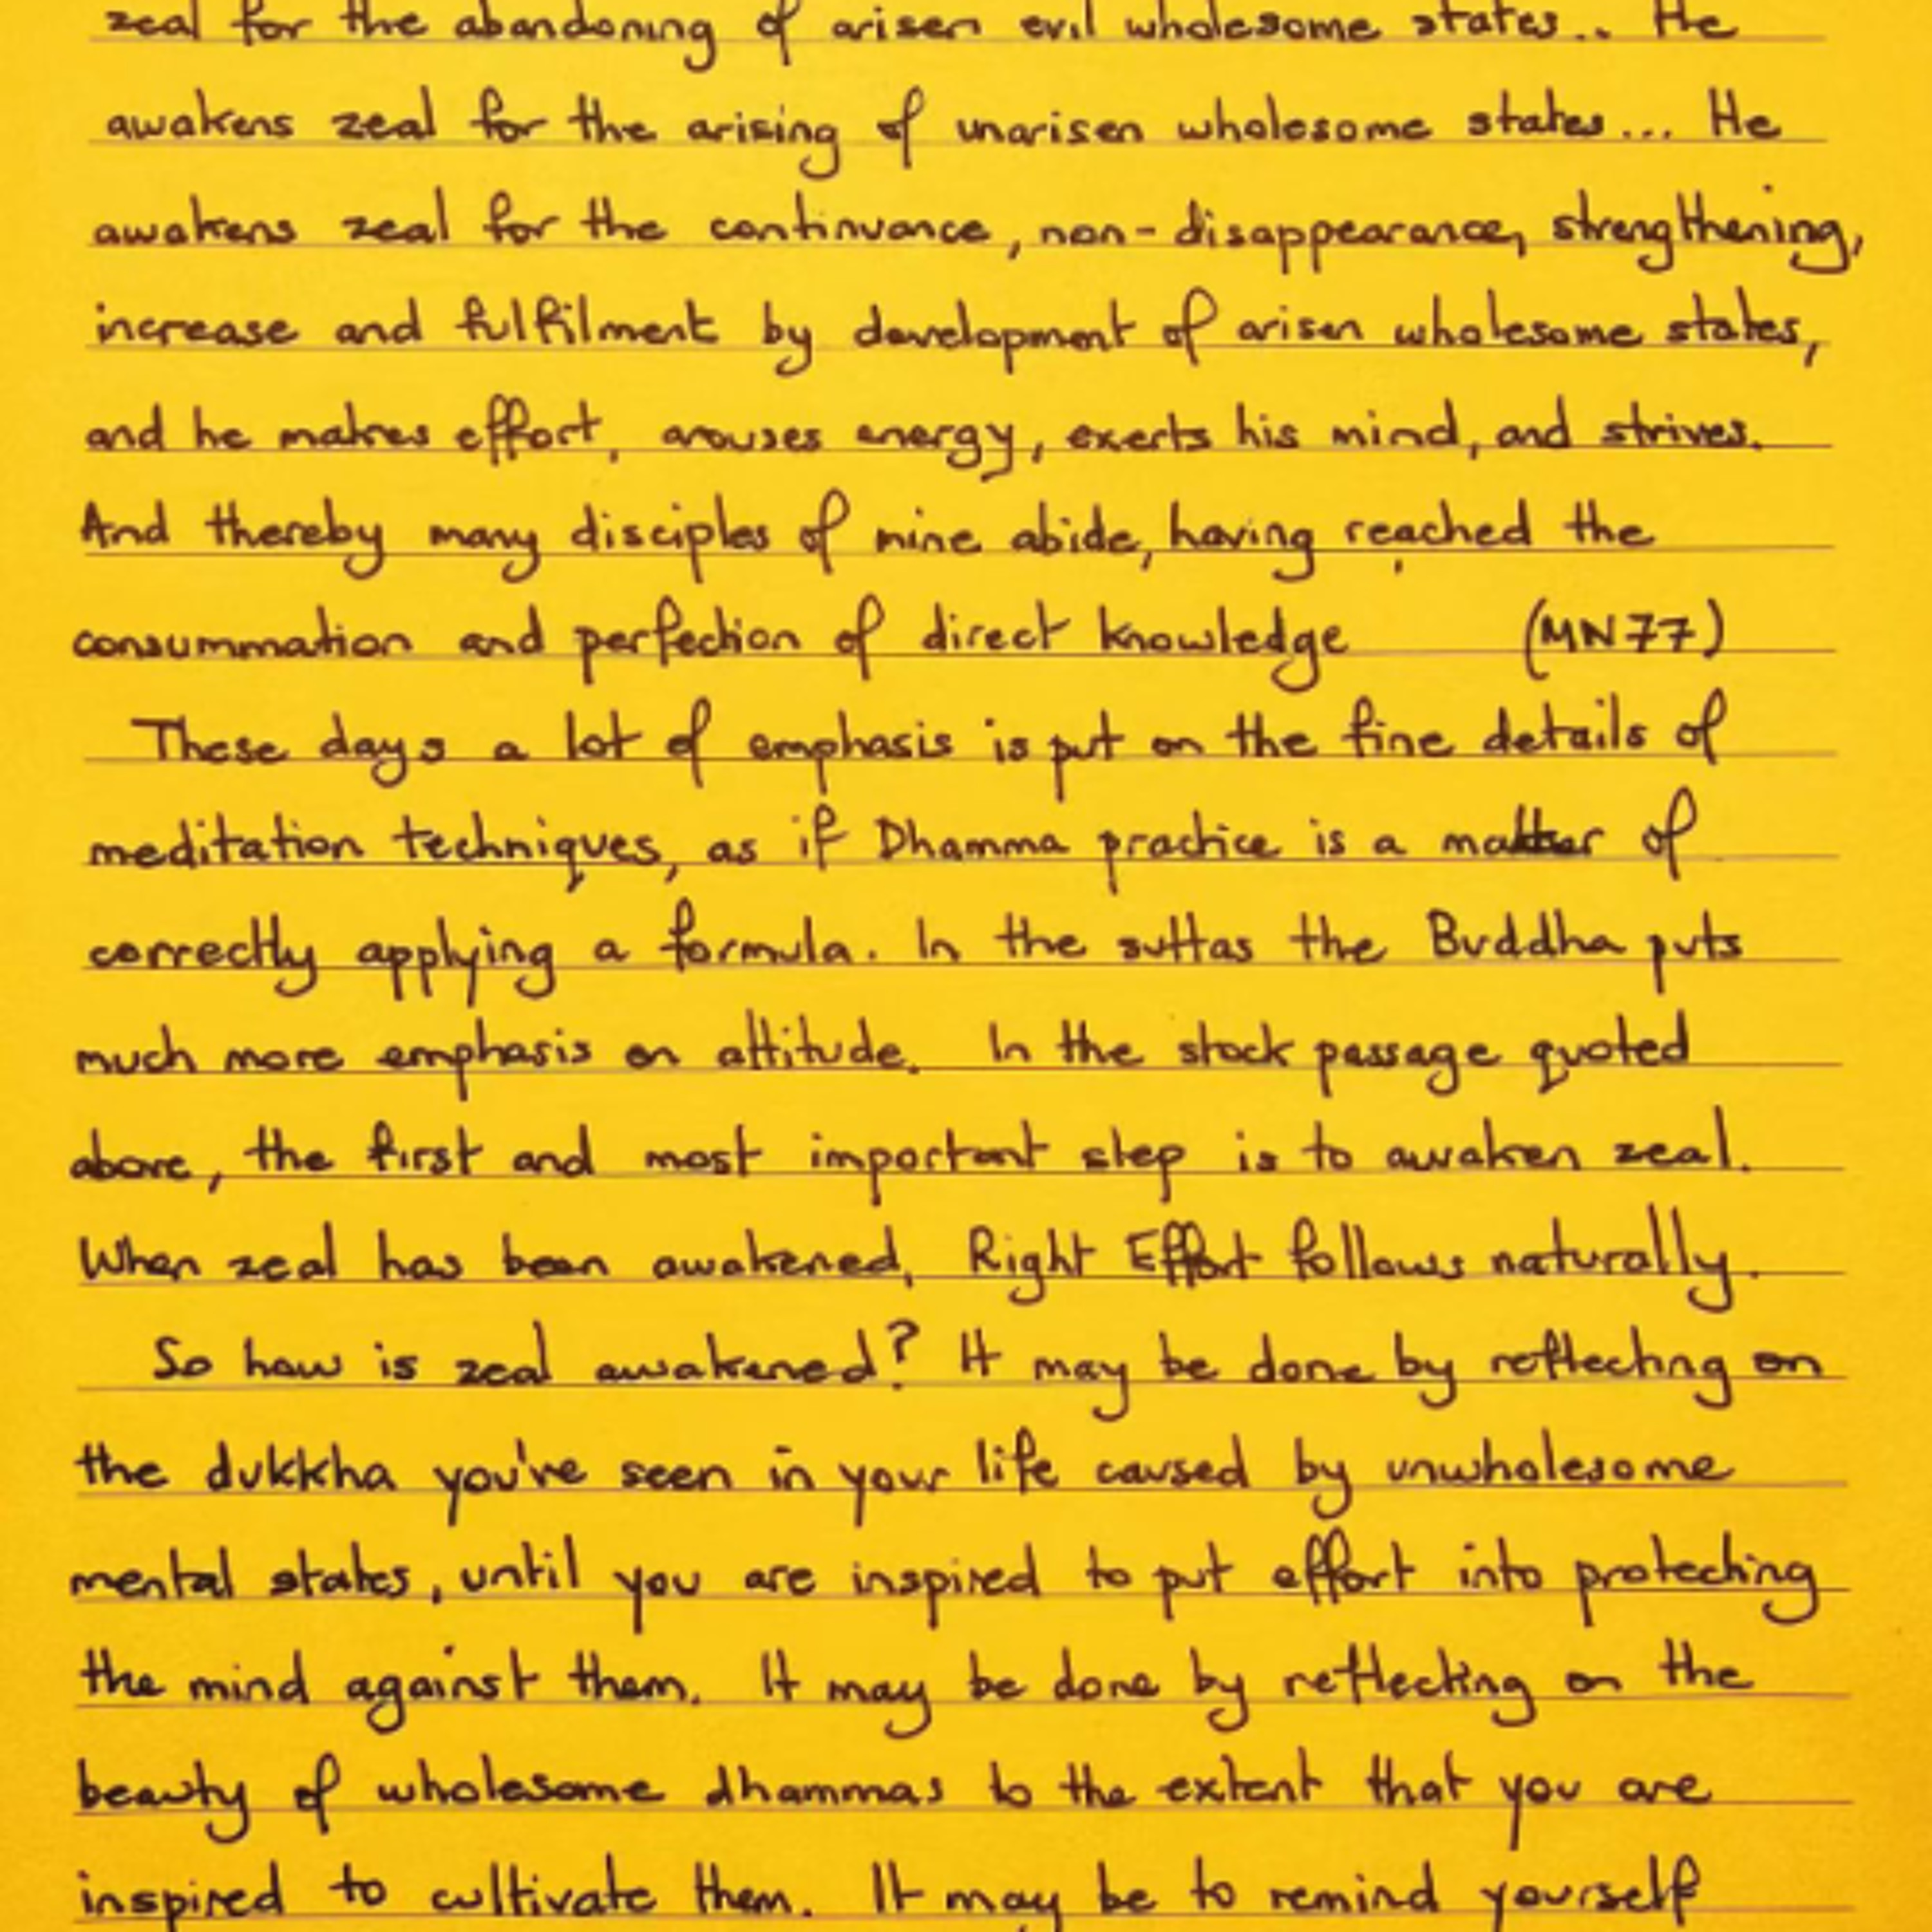 zeal for the abandoning of arisen evil wholesome states.. He
awakens zeal for the arising of unarisen wholesome states... He
awakens zeal for the continuance, non-disappearance, strengthening,
increase and fulfilment by development of arisen wholesome states,
and he makes effort, arouses energy, exerts his mind, and strives.
And thereby many disciples of mine abide, having reached the
consummation and perfection of direct knowledge (MN77)
These days a lot of emphasis is put on the fine details of
meditation techniques, as if Dhamma practice is a matter of
correctly applying a formula. In the suttas the Buddha puts
much more emphasis on attitude. In the stock passage quoted
above, the first and most important step is to awaken zeal.
When zeal has been awakened, Right Effort follows naturally.
So how is zeal awakened? It may be done by reflecting on
the dukkha you've seen in your life caused by unwholesome
mental states, until you are inspired to put effort into protecting
the mind against them. It may be done by reflecting on the
beauty of wholesome dhammas to the extent that you are
inspired to cultivate them. It may be to remind yourself